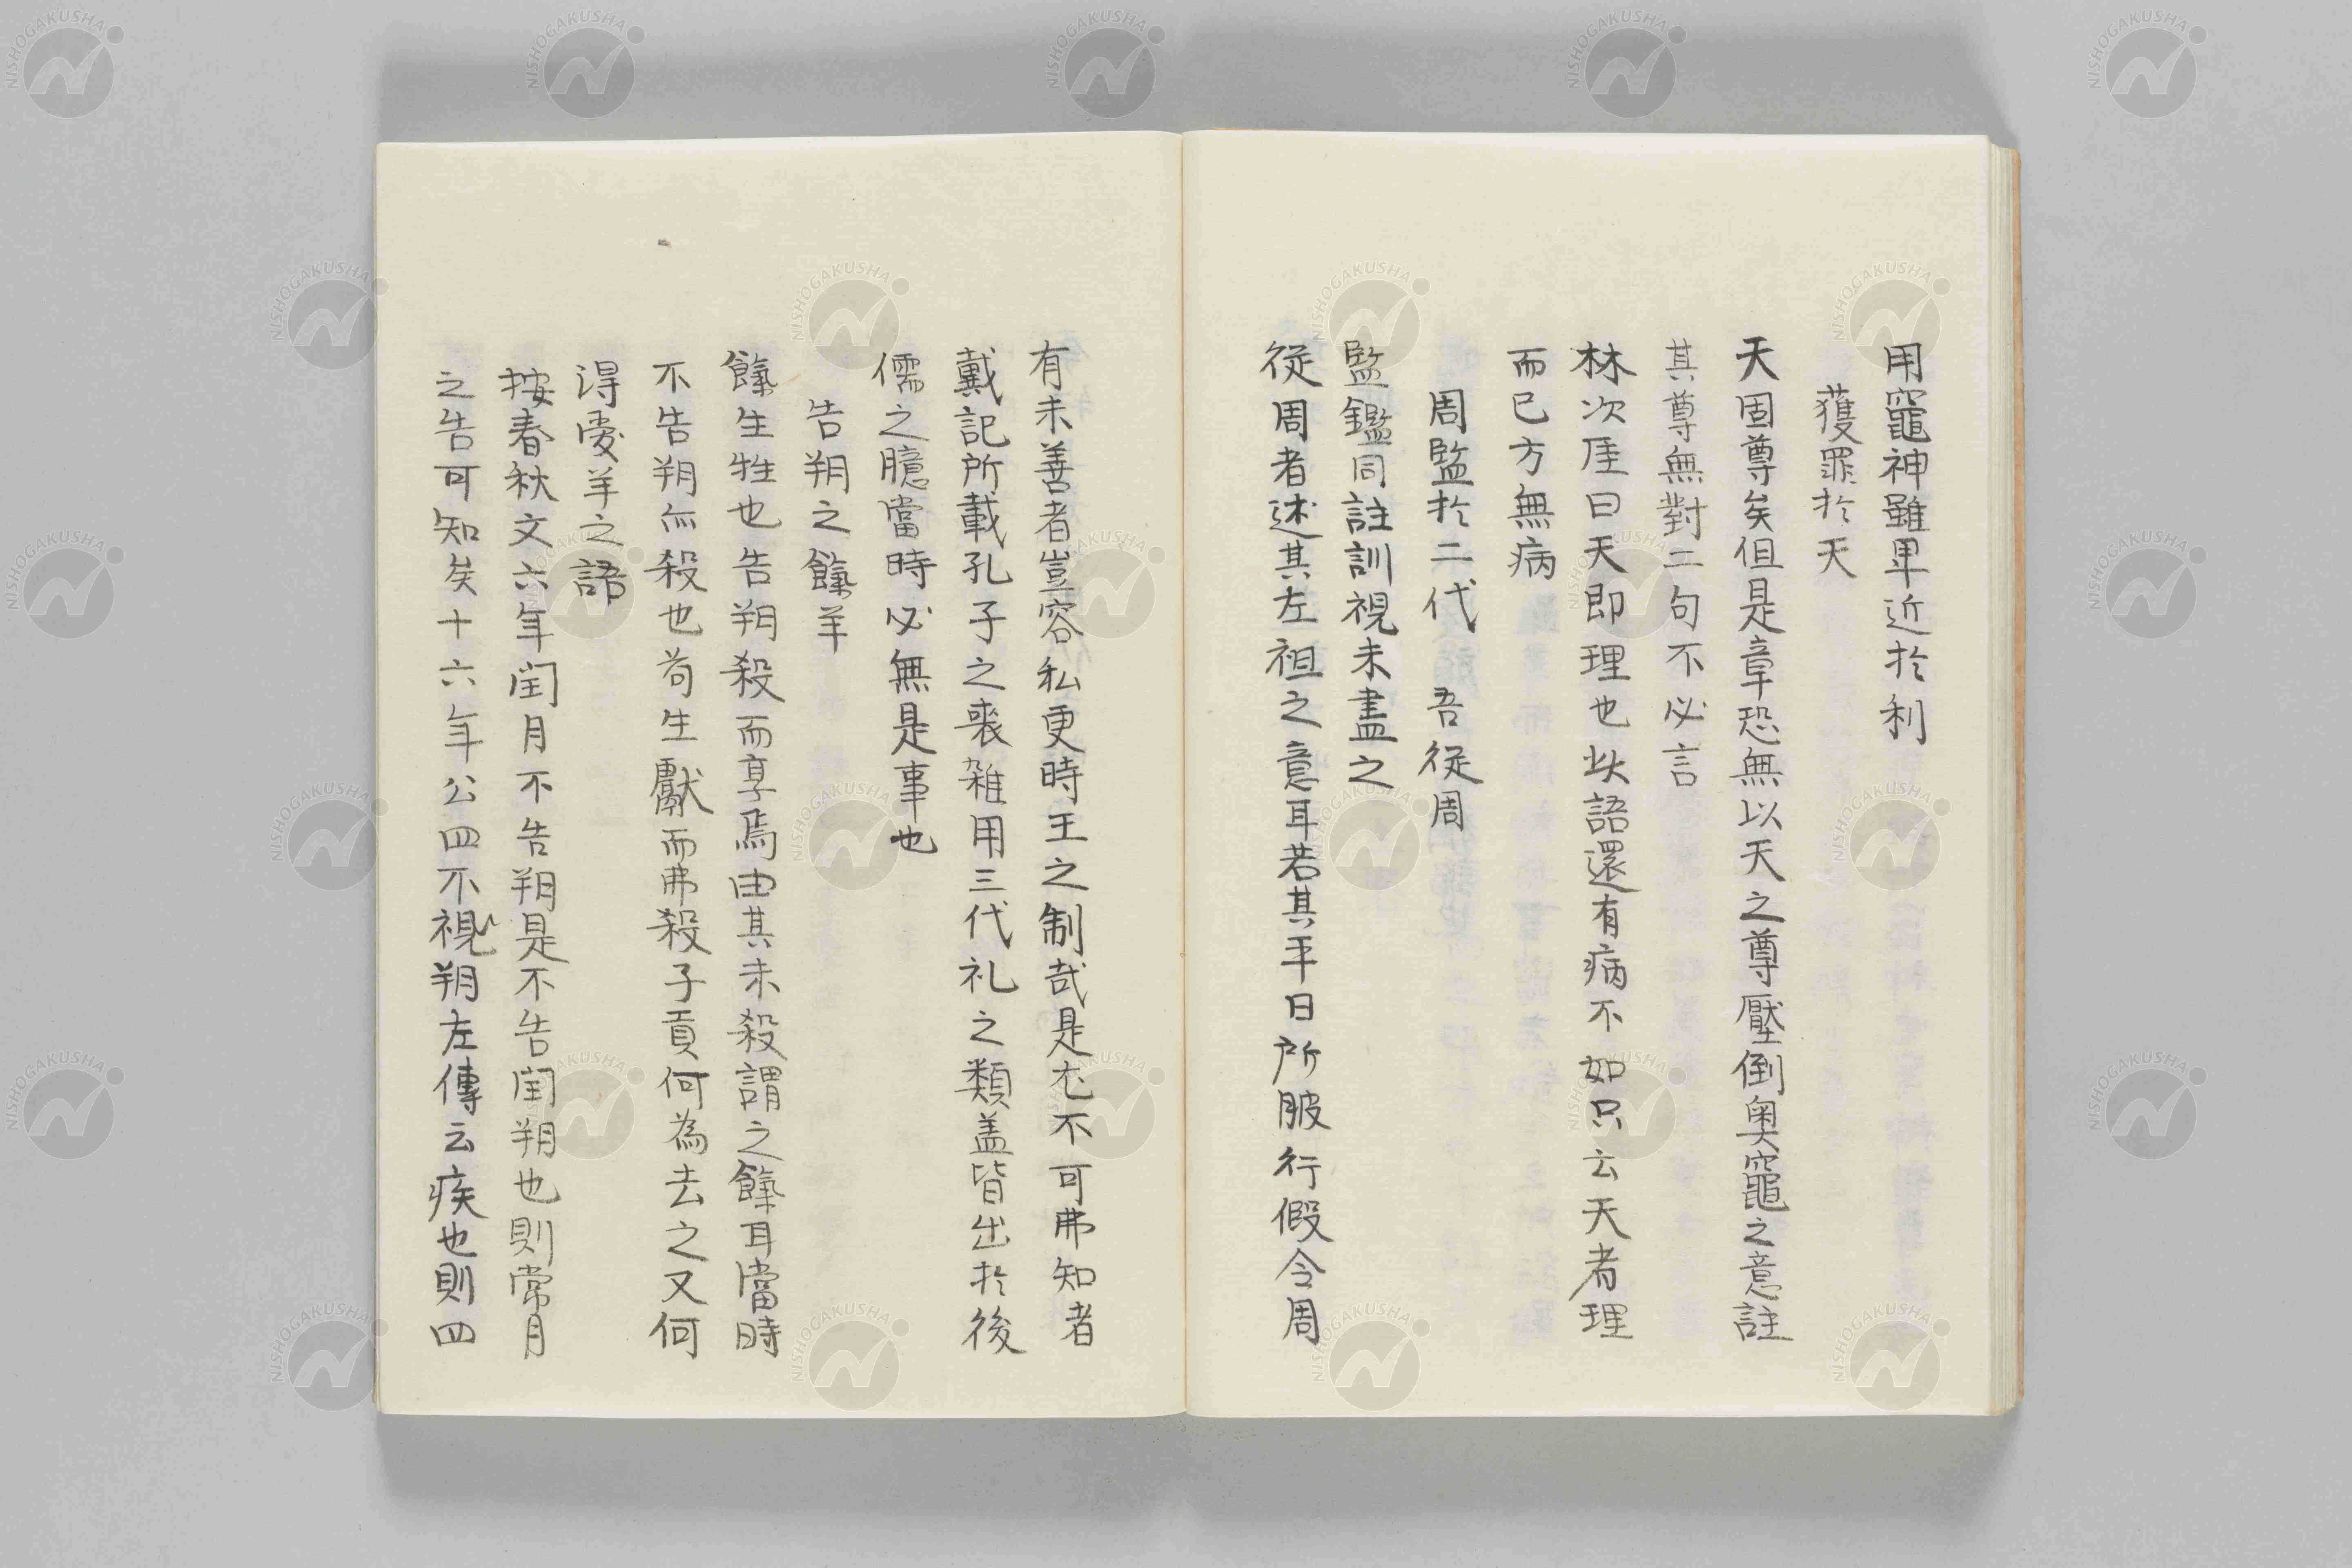 用竈神雖卑近於利
獲罪於天
天固尊矣但是章恐無以天之尊壓倒奧竈之意註
其尊無對二句不必言
林次厓曰天即理也此語還有病不如只云天者理
而已方無病
周監於二代　吾從周
監鑑同註訓視未盡之
從周者述其左袒之意耳若其平日所服行假令周
有未善者豈容私更時王之制哉是尤不可弗知者
戴記所載孔子之喪雑用三代礼之類盖皆出於後
儒之臆當時必無是事也
告朔之餼羊
餼生牲也告朔殺而享焉由其未殺謂之餼耳當時
不告朔而殺也苟生獻而弗殺子貢何為去之又何
得愛羊之語
按春秋文六年閏月不告朔是不告閏朔也則常月
之告可知矣十六年公四不視朔左傳云疾也則四